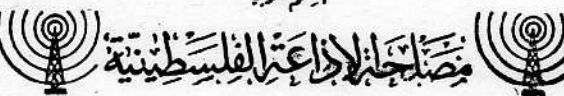 مصلحة الإذاعة الفلسطينية